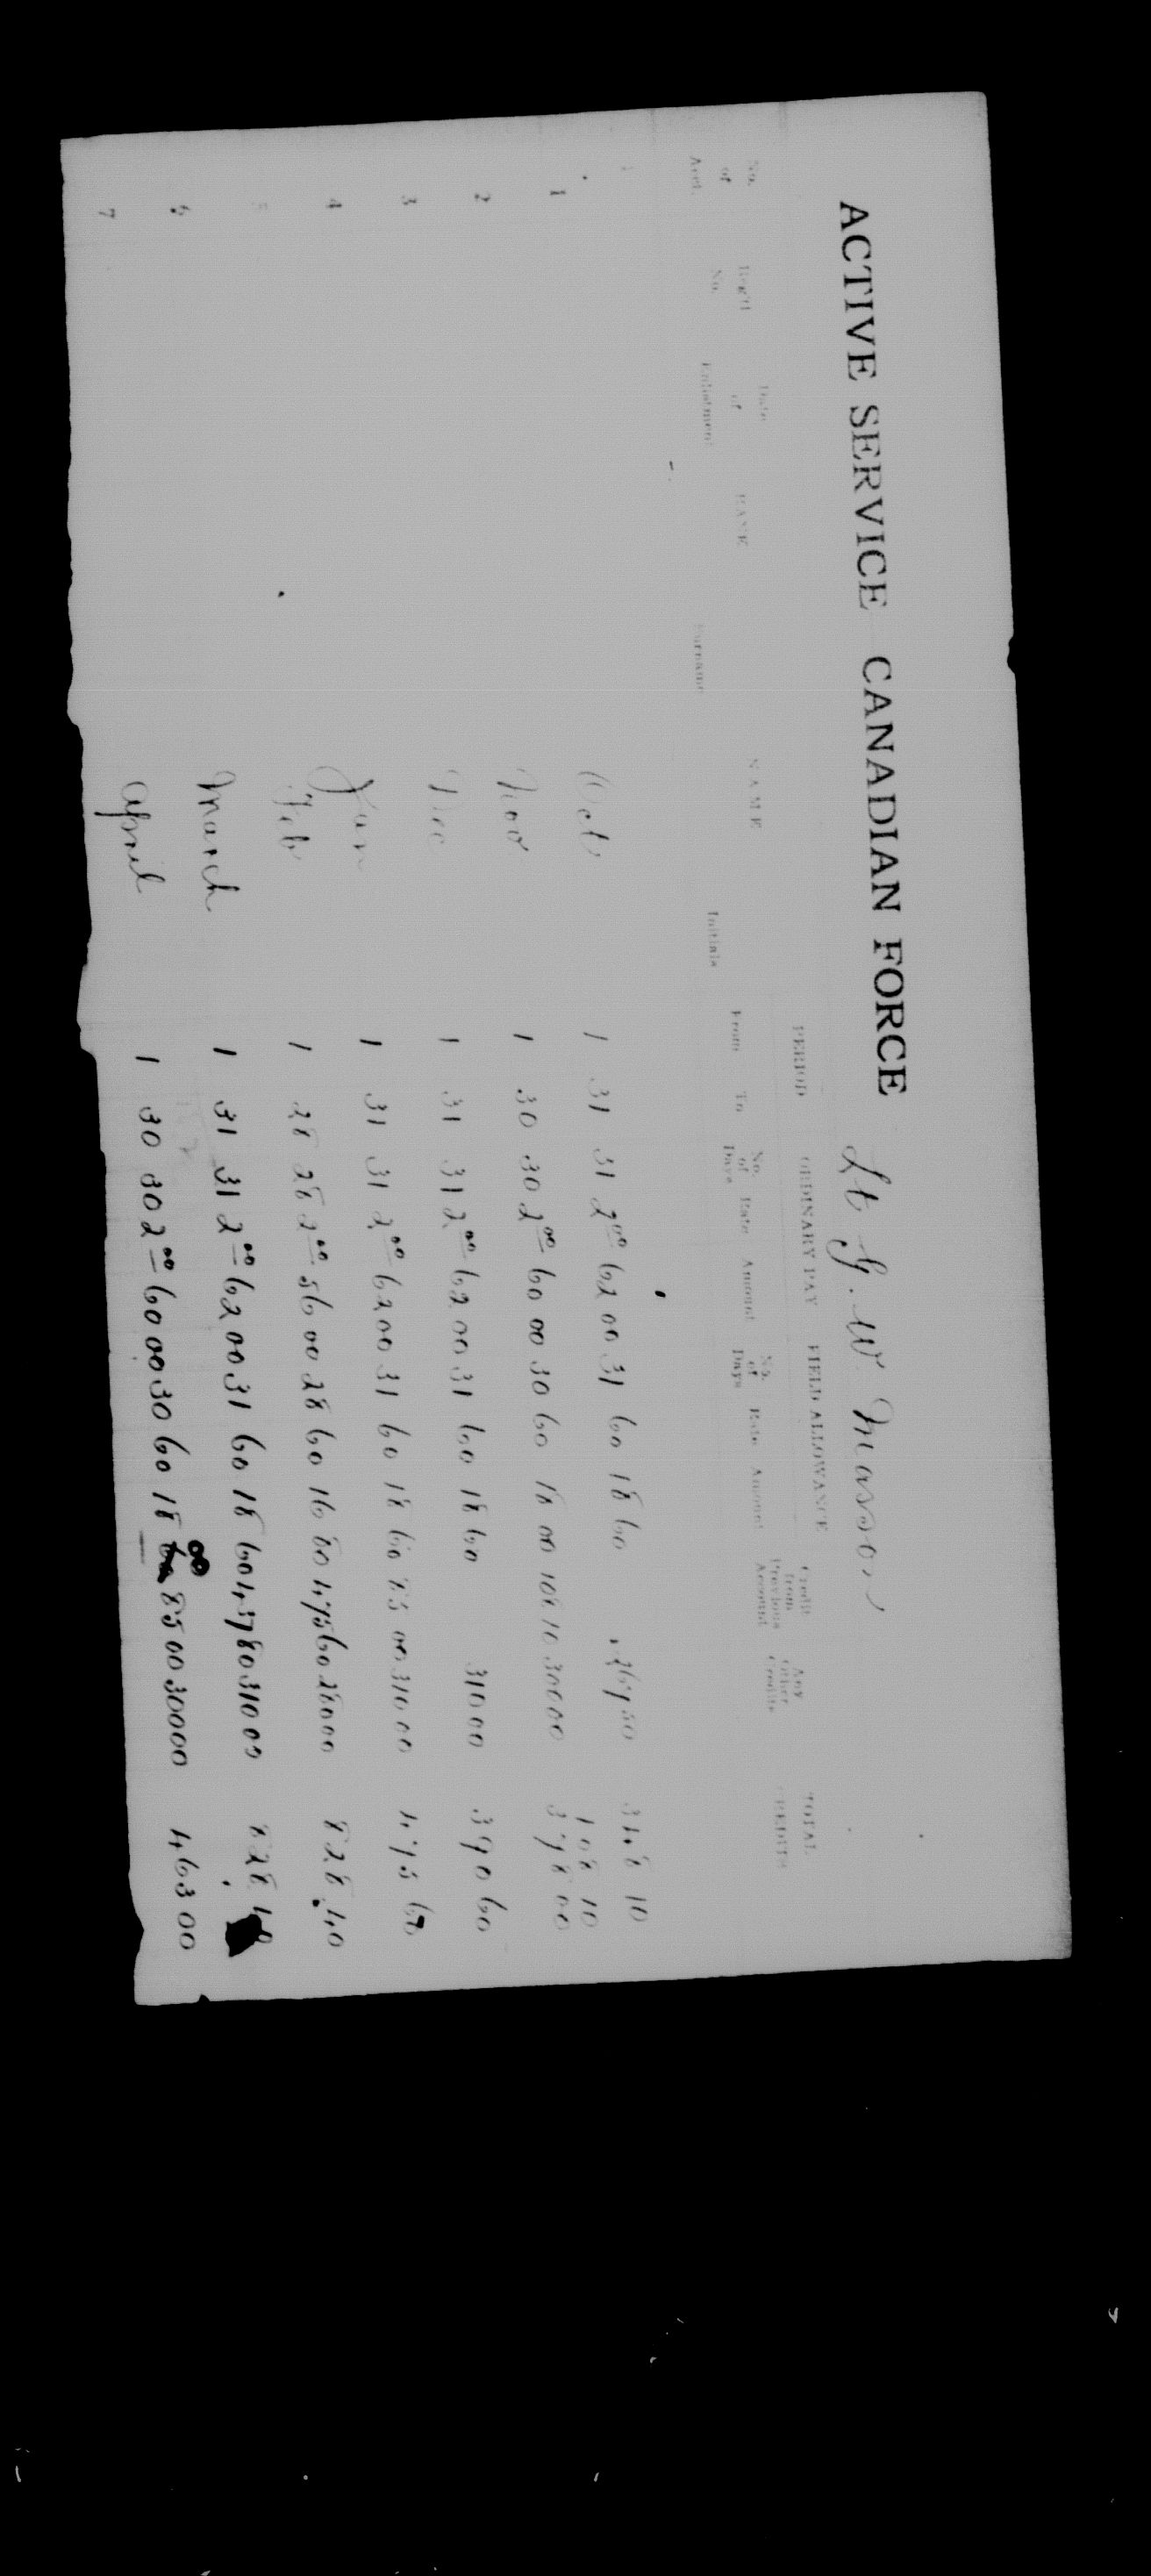 ACTIVE SERVICE CANADIAN FORCE Lt J. W Masson
PERIOD ORDINARY PAY FIELD ALLOWANCE Credit from Previous Account Any Other Credits TOTAL CREDITS
No. of Acct. Regtl No. Date of Enlistment RANK NAME From To No. of Days Rate Amount No. of Days Rate Amount
Surname Initials
Oct 1 31 31 2 00 62 00 31 60 18 60 348 10
108 10
1 Nov 1 30 30 2 00 60 00 30 60 18 00 108 10 300 00 378 00
2 Dec 1 31 31 2 00 62 00 31 60 18 60 310 00 390 60
3 Jan 1 31 31 2 00 62 00 31 60 18 60 85 00 310 00 475 60
4 Feb 1 28 28 2 00 56 00 28 60 16 80 475 60 280 00 828 40
5 March 1 31 31 2 00 62 00 31 60 18 60 437 80 310 00 828 40
6 April 1 30 30 2 00 60 00 30 60 18 00 85 00 300 00 463 00
7